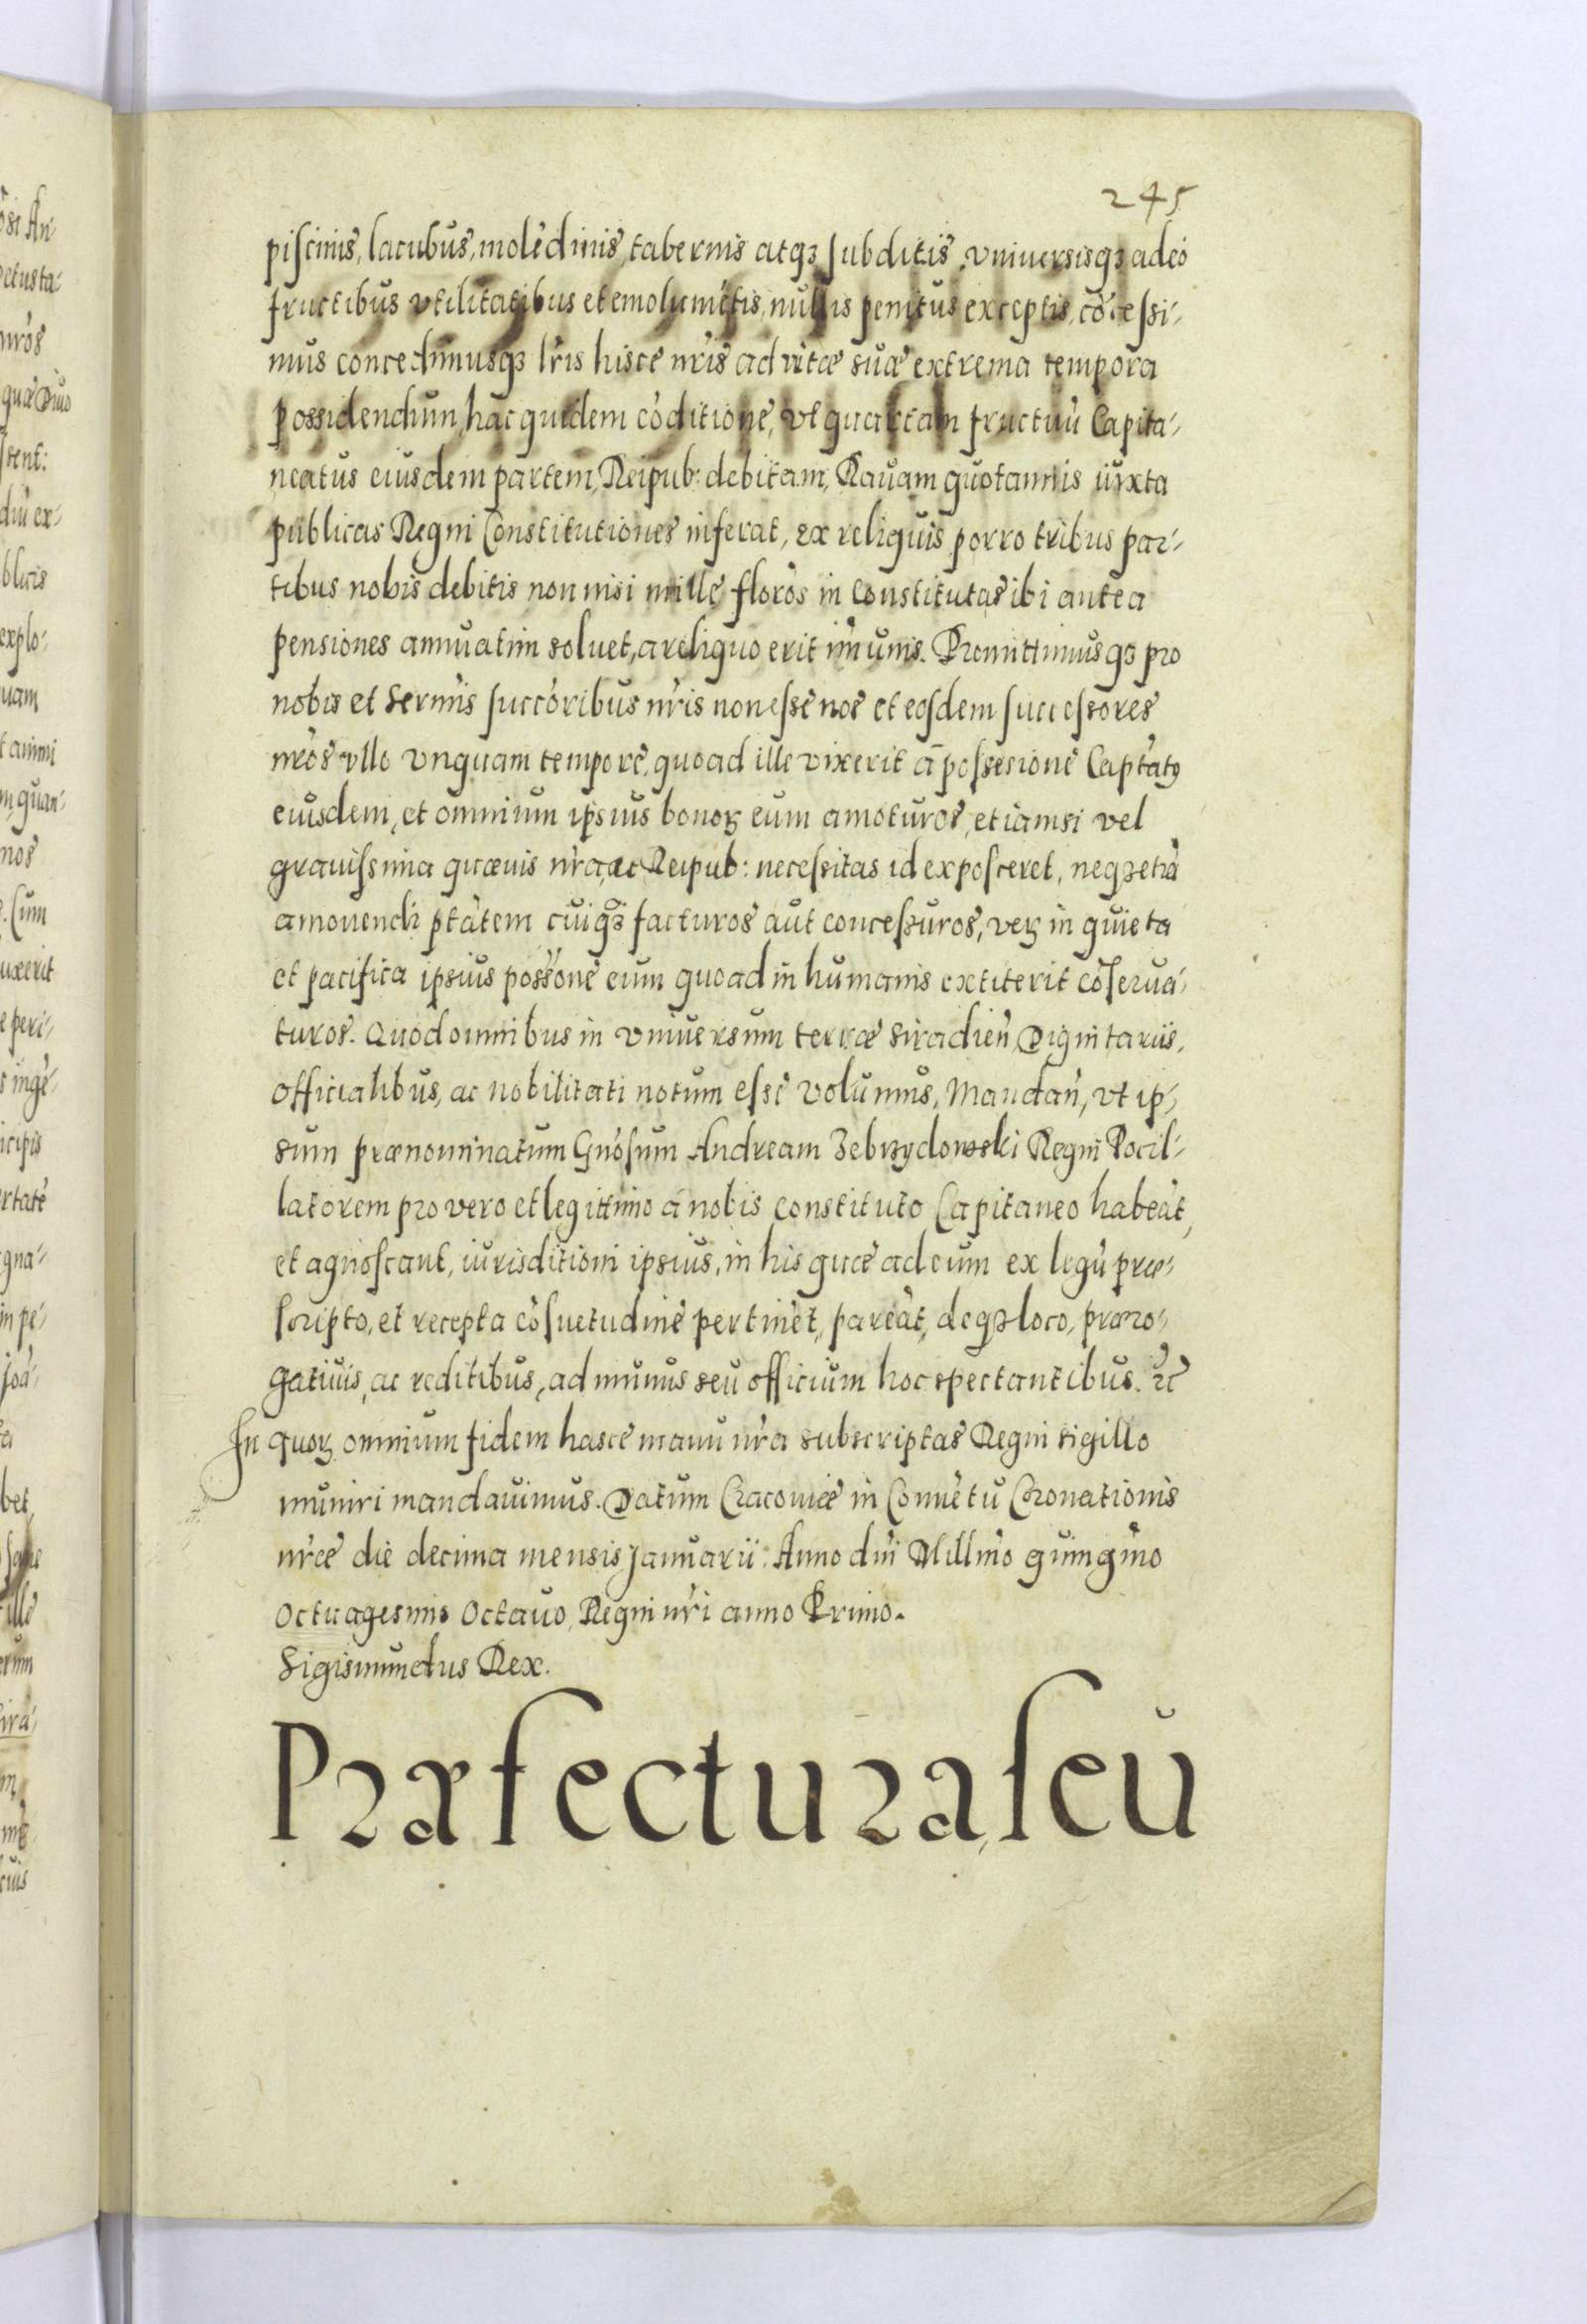 245
piscinis, lacubus, moledinis, tabernis atqȝ subditis, vniuersisqȝ adeò
fructibus vtilitatibus et emolumẽtis, nullis penitus exceptis, cõcessi-
mus concedimusqȝ lr̃is hisce nr̃is ad vitæ suæ extrema tempora
possidendum, hac quidem cõditione, vt quartam fructuũ Capita-
neatus eiusdem partem, Reipub: debitam, Rauam quotannis iuxta
publicas Regni Constitutiones inferat, ex reliquis porro tribus par-
tibus nobis debitis non nisi mille flor̃os in constitutas ibi antea
pensiones annuatim soluet, a reliquo erit im̃unis. Promittimusqȝ pro
nobis et Serm̃is succõribus nr̃is non esse nos et eosdem successores
nr̃os vllo vnquam tempore, quoad ille vixerit à possesione Capt̃atꝰ
eiusdem, et omnium ipsius bonoꝝ eum amoturos, etiamsi vel
grauissima quæuis nr̃a, ac Reipub: necessitas id exposceret, neqȝ etiã
amouendi pt̃atem cuiqȝ̃ facturos aut concessuros, veꝝ in quieta
et pacifica ipsius poss̃one eum quoad in humanis extiterit cõserua-
turos. Quod omnibus in vniuersum terræ Siradieñ Dignitariis,
officialibus, ac nobilitati notum esse volumus, Mandañ, vt ip-
sum prænominatum Gñosum Andream Zebrzydowski Regni Pocil-
latorem pro vero et legittimo à nobis constituto Capitaneo habeãt,
et agnoscant, iurisditioni ipsius, in his quæ ad eum ex legũ præ-
scripto, et recepta cõsuetudine pertinẽt, pareãt, deqȝ loco, præro-
gatiuis, ac reditibus, ad munus seu officium hoc spectantibus. ꝛc̃
In quoꝝ omnium fidem hasce manu nr̃a subscriptas Regni sigillo
muniri mandauimus. Datum Cracouiæ in Conuẽtu Coronationis
nr̃æ die decima mensis Januarii. Anno dñi Millm̃o quingm̃o
Octuagesimo Octauo, Regni nr̃i anno Primo.
Sigismundus Rex.
Præfectura, seu